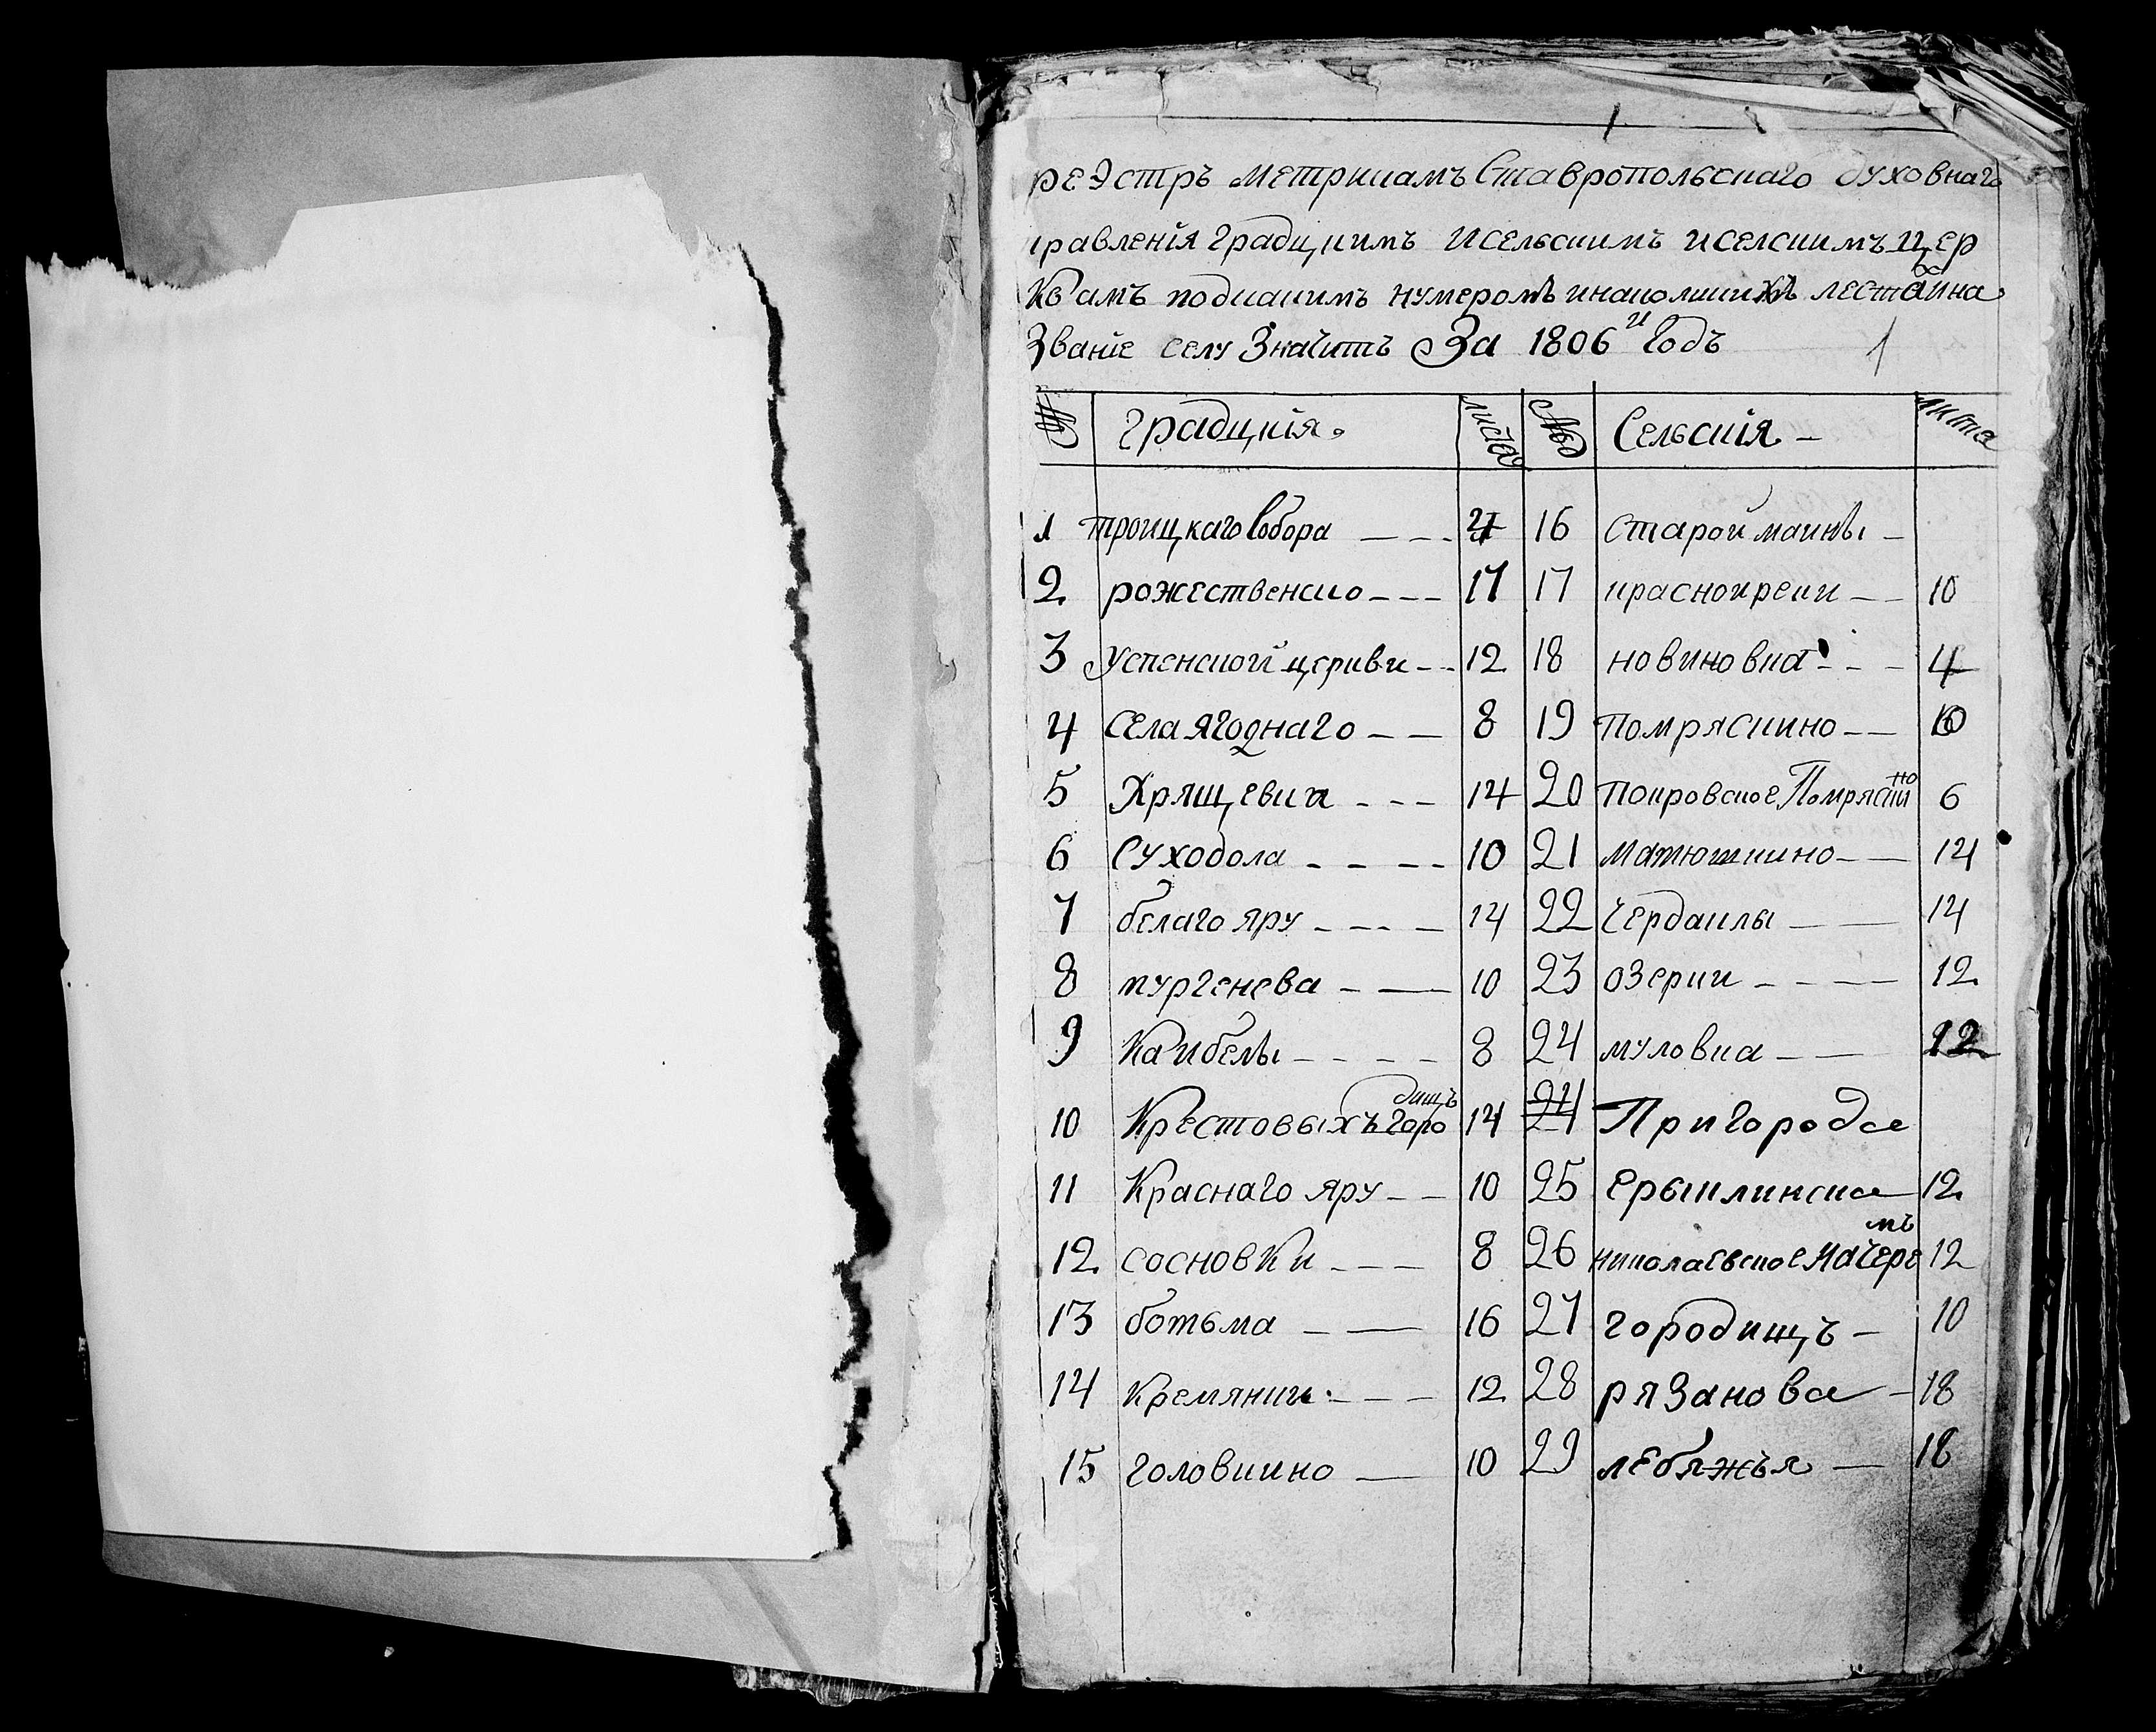 реэстръ метрикамъ Ставропольскаго духовнаго
правленія градцкимъ исельскимъ иселскимъ цер
квамъ подкакимъ нумеромъ инаколкихъ лестахъ ина
Званіе селу Значитъ За 1806и Годъ
1
№ градцкія листа № Сельскія листа
1 троицкаго Собора 16 Старой маины
2 рожественско 17 17 краснорецки 10
3 Успенской церкви 12 18 новиновка 4
4 Села ягоднаго 8 19 Помряскино 10
5 Хрящевка 14 20 Покровское Помряскино 6
6 Суходола 10 21 матюшкино 14
7 белаго яру 14 22 Чердаклы 14
8 тургенева 10 23 озерки 12
9 Каибелы 8 24 муловка 12
10 Крестовыхъ городищъ 14 24 Пригорода
11 Краснаго яру 10 25 ерыклинска 12
12 сосновки 8 26 николаевское Начеремъ 12
13 ботьма 16 27 городищъ 10
14 кремянки 12 28 рязанова 18
15 головкино 10 29 лебяжья 18